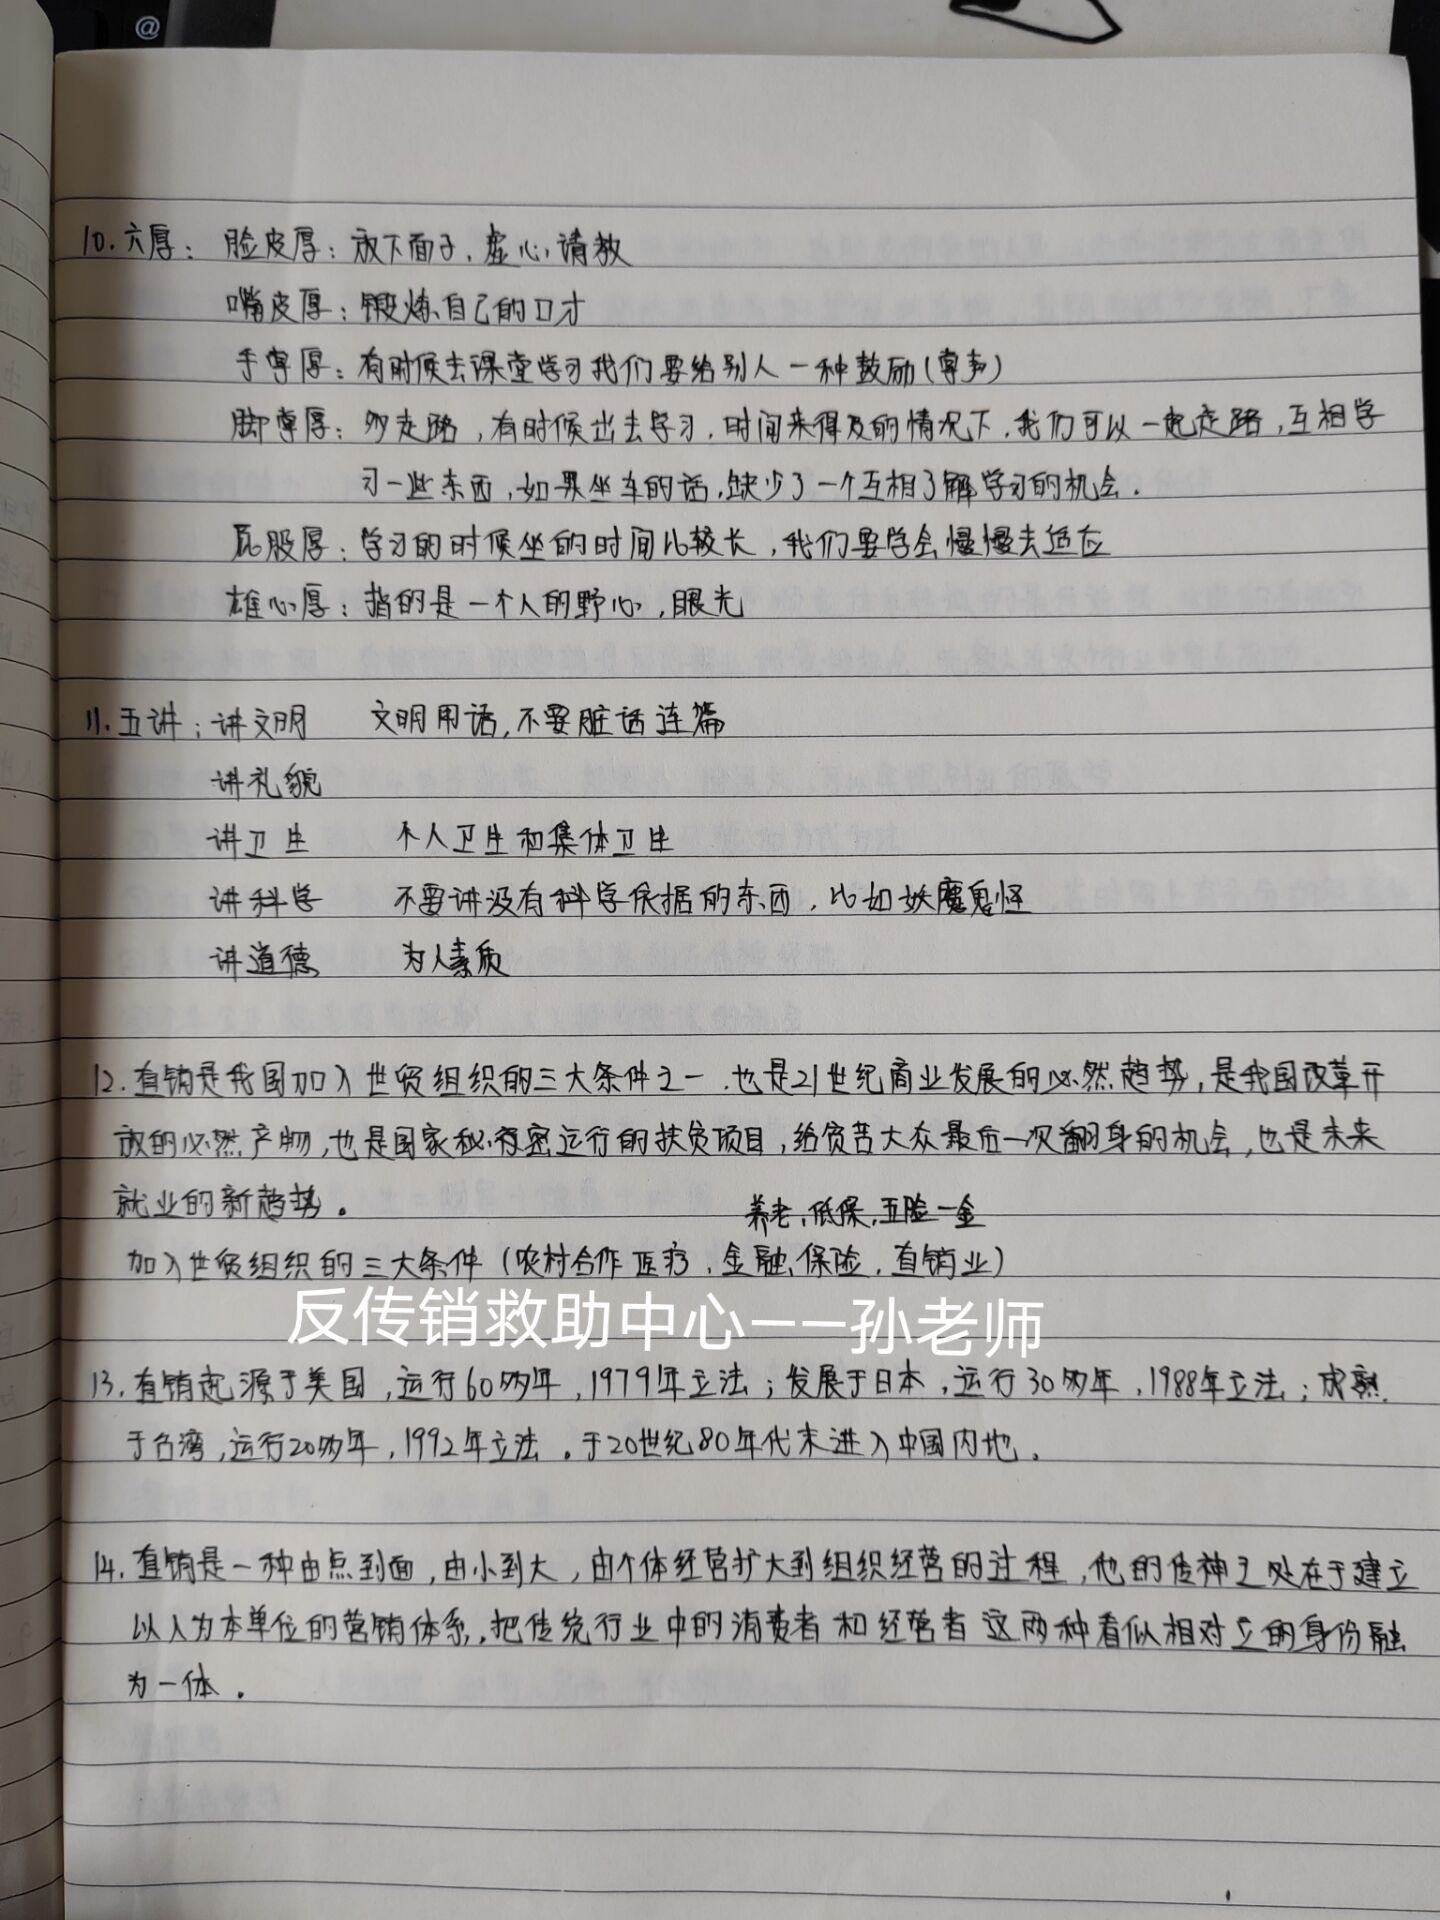 @
10. 六厚： 脸皮厚：放下面子，虚心请教
嘴皮厚：锻炼自己的口才
手掌厚：有时候去课堂学习我们要给别人一种鼓励(掌声)
脚掌厚：多走路，有时候出去学习，时间来得及的情况下，我们可以一起走路，互相学
习一些东西，如果坐车的话，缺少了一个互相了解学习的机会.
屁股厚：学习的时候坐的时间比较长，我们要学会慢慢去适应
雄心厚：指的是一个人的野心，眼光
11. 五讲：讲文明 文明用语，不要脏话连篇
讲礼貌
讲卫生 个人卫生和集体卫生
讲科学 不要讲没有科学依据的东西，比如妖魔鬼怪
讲道德 为人素质
12. 直销是我国加入世贸组织的三大条件之一，也是21世纪商业发展的必然趋势，是我国改革开
放的必然产物，也是国家秘密运行的扶贫项目，给贫苦大众最后一次翻身的机会，也是未来
就业的新趋势。
养老，低保，五险一金
加入世贸组织的三大条件（农村合作医疗，金融保险，直销业）
反传销救助中心——孙老师
13. 直销起源于美国，运行60多年，1979年立法；发展于日本，运行30多年，1988年立法；成熟
于台湾，运行20多年，1992年立法。于20世纪80年代末进入中国内地。
14. 直销是一种由点到面，由小到大，由个体经营扩大到组织经营的过程，他的传神之处在于建立
以人为本单位的营销体系，把传统行业中的消费者和经营者这两种看似相对立的身份融
为一体。